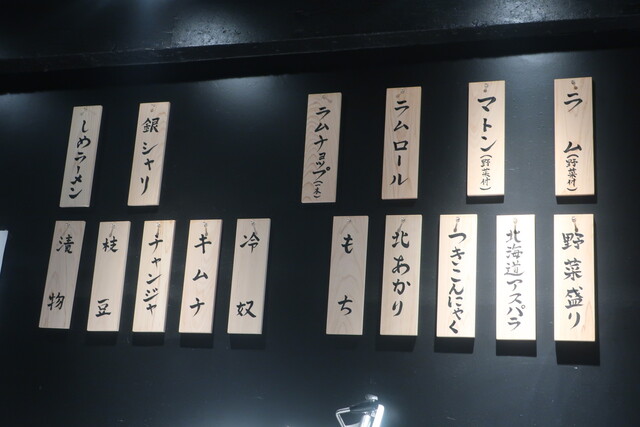 ラム(野菜付)
マトン(野菜付)
ラムロール
ラムチョップ(一本)
銀シャリ
しめラーメン
野菜盛り
北海道アスパラ
つきこんにゃく
北あかり
もち
冷奴
キムチ
チャンジャ
枝豆
漬物